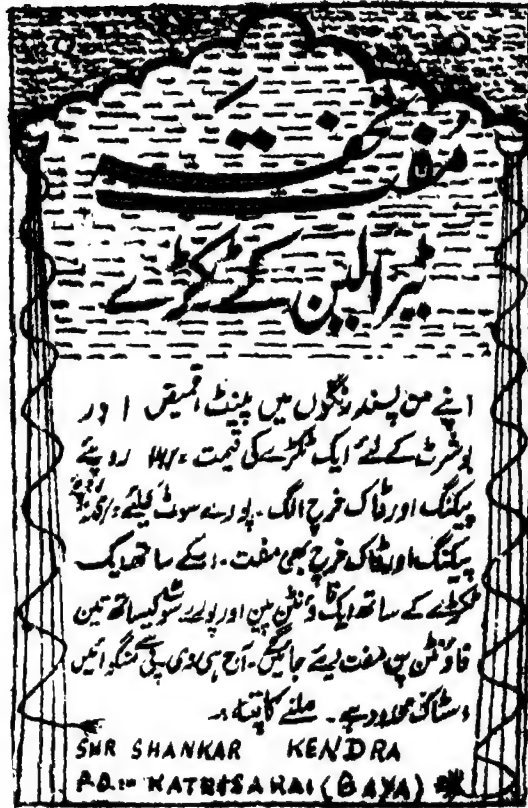 مفت مفت
ٹیرالین کے ٹکڑے
اپنے من پسند رنگوں میں پینٹ قمیض اور
بوشرٹ کے لئے ایک ٹکڑے کی قیمت روپئے
پیکنگ اور ڈاک خرچ الگ۔ پورے سوٹ کیلئے
پیکنگ اور ڈاک خرچ بھی مفت۔ اسکے ساتھ ایک
ٹکڑے کے ساتھ ایک فاؤنٹن پین اور پورے سوٹ کیساتھ تین
فاؤنٹن پن مفت دیئے جائیں گے۔ آج ہی وی پی سے منگوائیں
سٹاک محدود ہے۔ ملنے کا پتہ :۔
SHANKAR KENDRA
P.O. :- KATRISARAI (GAYA)